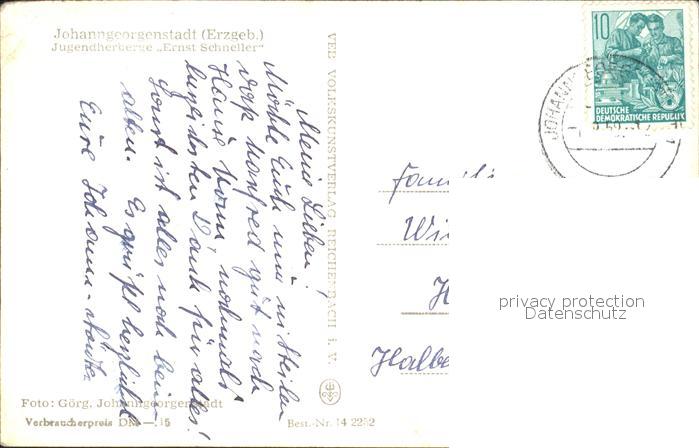 Johanngeorgenstadt (Erzgeb.)
Jugendherberge „Ernst Schneller"
Meine Lieben!
Möchte Euch nur mitteilen
daß Manfred gut nach
Hause kam, nochmals
herzlichsten Dank für alles!
Sonst ist alles noch beim
alten. Es grüßt herzlichst
Eure
VEB VOLKSKUNSTVERLAG REICHENBACH i. V.
Foto: Görg, Johanngeorgenstadt
Verbraucherpreis DM —.15
Best.-Nr. 14 2252
10
DEUTSCHE
DEMOKRATISCHE REPUBLIK
Fam
Wi
H
Halbe
privacy protection
Datenschutz